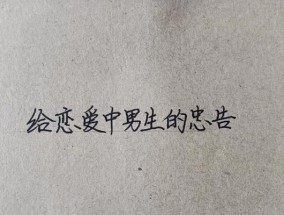 给恋爱中男生的忠告